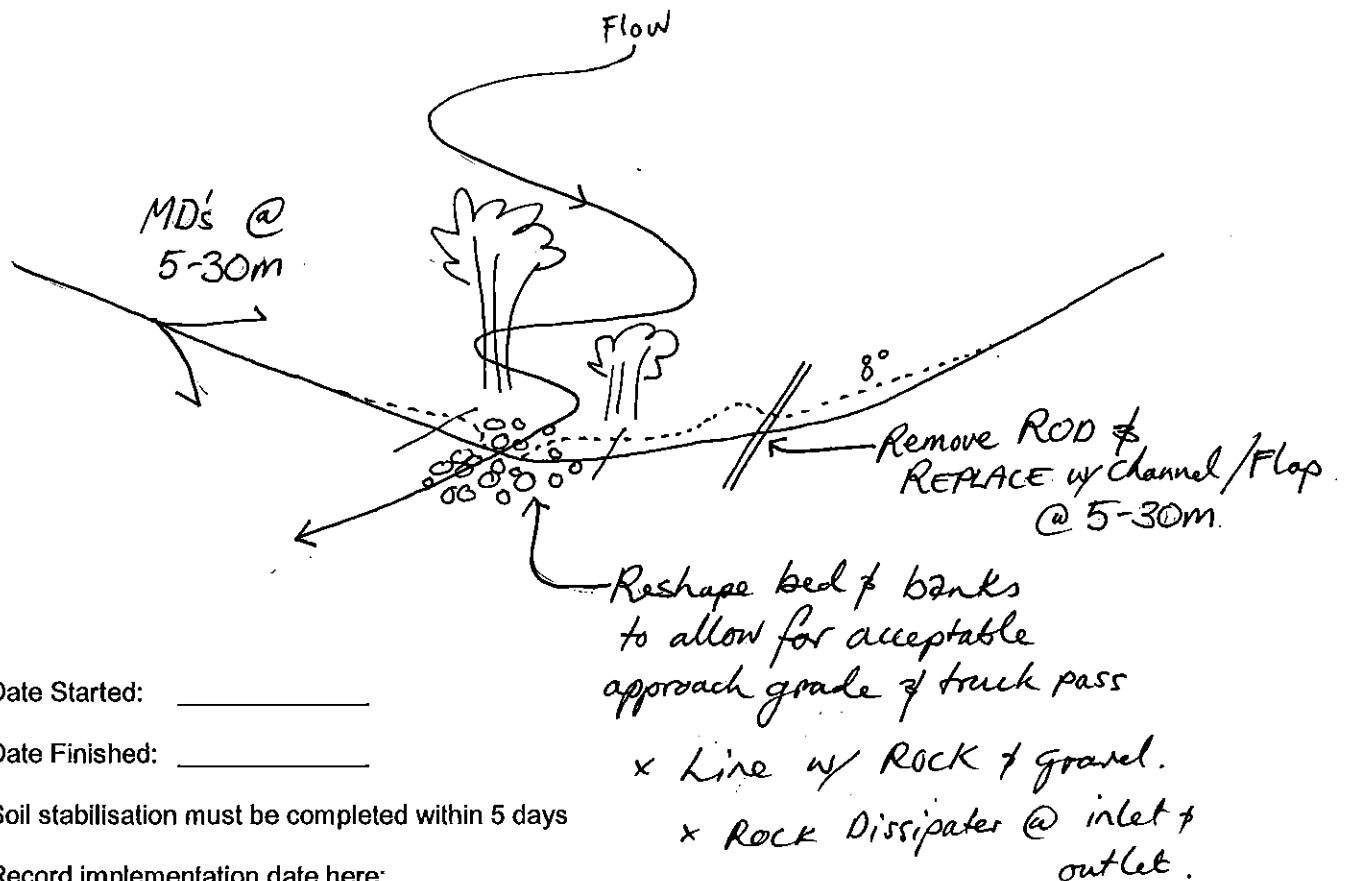 Flow
MD's @
5-30m
8°
Remove ROD &
REPLACE w/ Channel/Flap
@ 5-30m.
Reshape bed & banks
to allow for acceptable
approach grade & truck pass
x Line w/ ROCK & gravel.
x ROCK Dissipater @ inlet &
outlet.
Date Started:
Date Finished:
Soil stabilisation must be completed within 5 days
Record implementation date here: